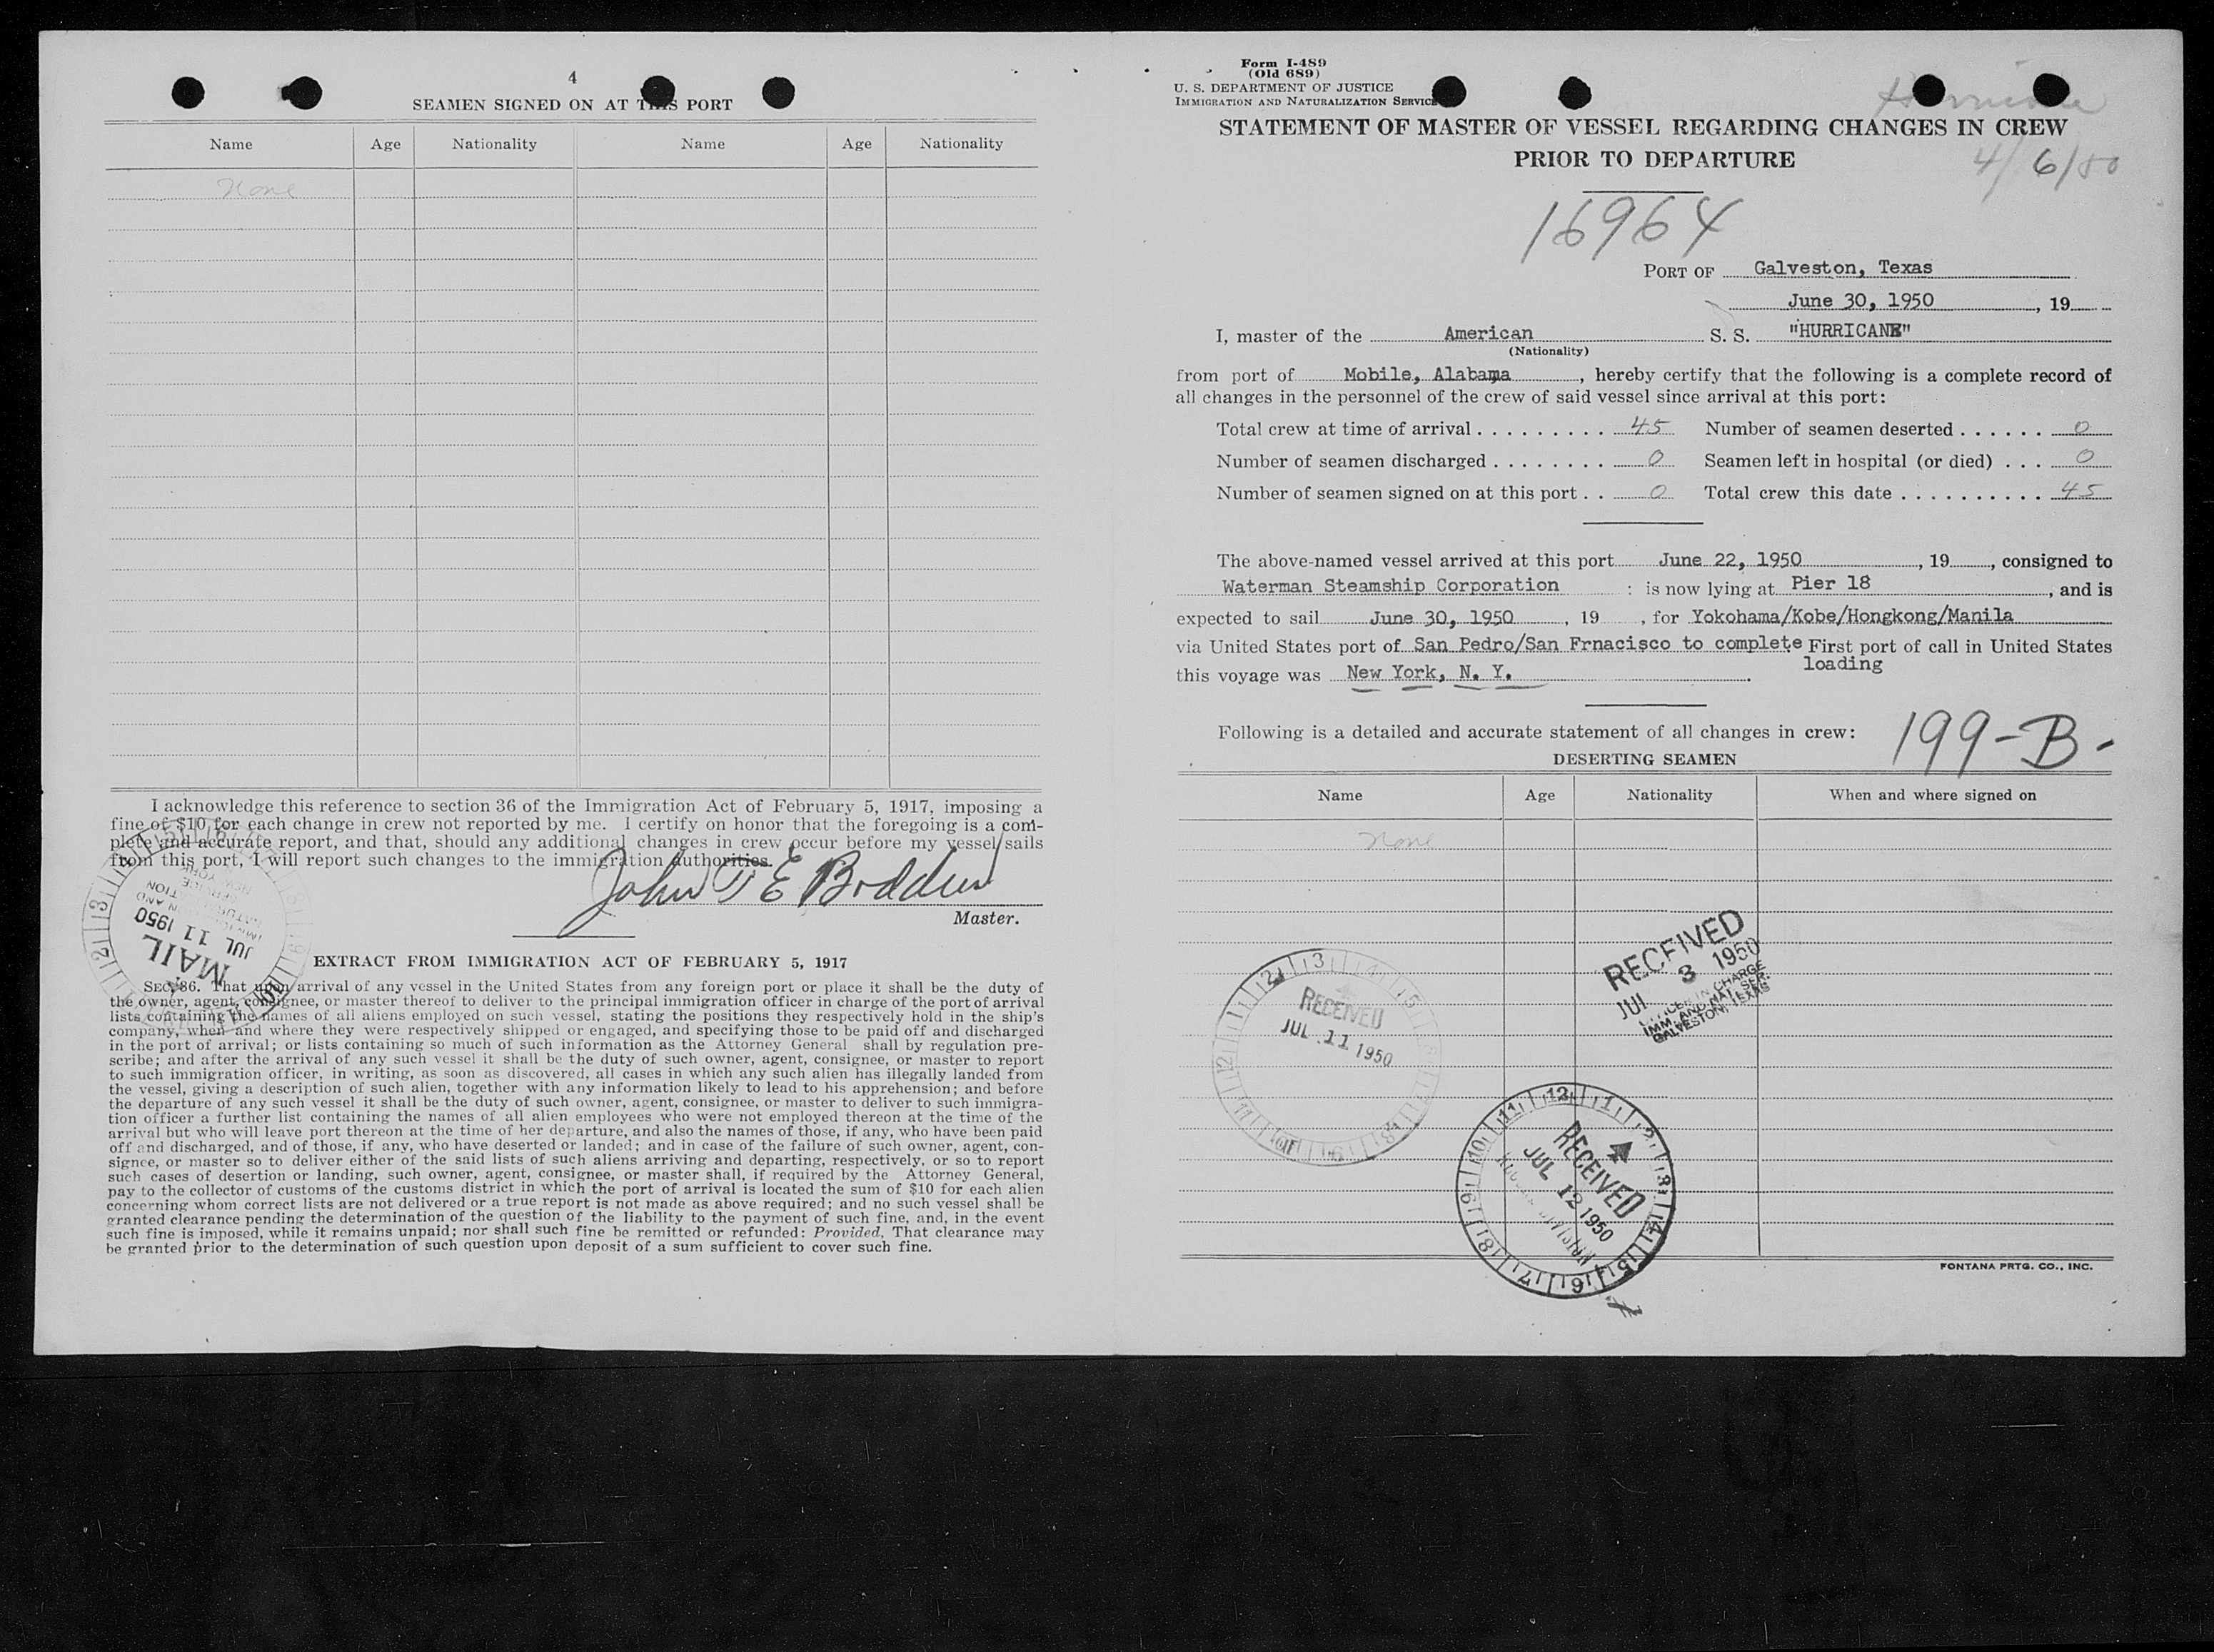 4
SEAMEN SIGNED ON AT THIS PORT
Name Age Nationality Name Age Nationality
None
I acknowledge this reference to section 36 of the Immigration Act of February 5, 1917, imposing a
fine of $10 for each change in crew not reported by me. I certify on honor that the foregoing is a com-
plete and accurate report, and that, should any additional changes in crew occur before my vessel sails
from this port, I will report such changes to the immigration authorities.
John T E Bodden
Master.
MAIL
JUL 11 1950
EXTRACT FROM IMMIGRATION ACT OF FEBRUARY 5, 1917
SEC. 36. That upon arrival of any vessel in the United States from any foreign port or place it shall be the duty of
the owner, agent, consignee, or master thereof to deliver to the principal immigration officer in charge of the port of arrival
lists containing the names of all aliens employed on such vessel, stating the positions they respectively hold in the ship's
company, when and where they were respectively shipped or engaged, and specifying those to be paid off and discharged
in the port of arrival; or lists containing so much of such information as the Attorney General shall by regulation pre-
scribe; and after the arrival of any such vessel it shall be the duty of such owner, agent, consignee, or master to report
to such immigration officer, in writing, as soon as discovered, all cases in which any such alien has illegally landed from
the vessel, giving a description of such alien, together with any information likely to lead to his apprehension; and before
the departure of any such vessel it shall be the duty of such owner, agent, consignee, or master to deliver to such immigra-
tion officer a further list containing the names of all alien employees who were not employed thereon at the time of the
arrival but who will leave port thereon at the time of her departure, and also the names of those, if any, who have been paid
off and discharged, and of those, if any, who have deserted or landed; and in case of the failure of such owner, agent, con-
signee, or master so to deliver either of the said lists of such aliens arriving and departing, respectively, or so to report
such cases of desertion or landing, such owner, agent, consignee, or master shall, if required by the Attorney General,
pay to the collector of customs of the customs district in which the port of arrival is located the sum of $10 for each alien
concerning whom correct lists are not delivered or a true report is not made as above required; and no such vessel shall be
granted clearance pending the determination of the question of the liability to the payment of such fine, and, in the event
such fine is imposed, while it remains unpaid; nor shall such fine be remitted or refunded: Provided, That clearance may
be granted prior to the determination of such question upon deposit of a sum sufficient to cover such fine.
Form I-489
(Old 689)
U. S. DEPARTMENT OF JUSTICE
IMMIGRATION AND NATURALIZATION SERVICE
Hurricane
STATEMENT OF MASTER OF VESSEL REGARDING CHANGES IN CREW
PRIOR TO DEPARTURE
4/6/50
16964
PORT OF Galveston, Texas
June 30, 1950, 19
I, master of the American S. S. "HURRICANE"
(Nationality)
from port of Mobile, Alabama, hereby certify that the following is a complete record of
all changes in the personnel of the crew of said vessel since arrival at this port:
Total crew at time of arrival 45 Number of seamen deserted 0
Number of seamen discharged 0 Seamen left in hospital (or died) 0
Number of seamen signed on at this port 0 Total crew this date 45
The above-named vessel arrived at this port June 22, 1950, 19, consigned to
Waterman Steamship Corporation : is now lying at Pier 18, and is
expected to sail June 30, 1950, 19, for Yokohama/Kobe/Hongkong/Manila
via United States port of San Pedro/San Frnacisco to complete First port of call in United States
loading
this voyage was New York, N. Y.
Following is a detailed and accurate statement of all changes in crew:
199-B-
DESERTING SEAMEN
Name Age Nationality When and where signed on
None
RECEIVED
JUL 3 1950
OFFICER IN CHARGE
IMM. AND NAT. SER.
GALVESTON, TEXAS
RECEIVED
JUL 11 1950
RECEIVED
JUL 12 1950
DIVISION
FONTANA PRTG. CO., INC.